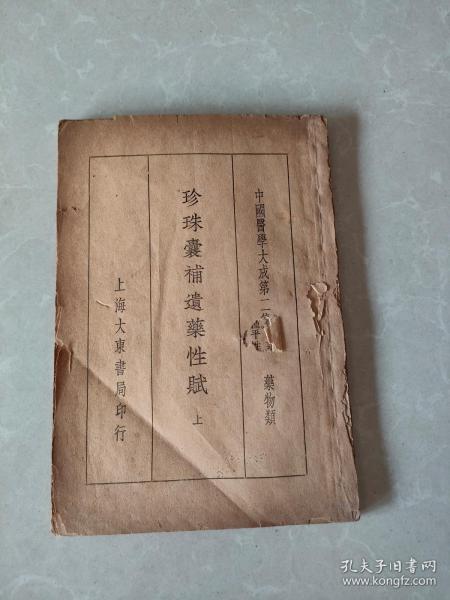 中國醫學大成第二
藥物類
珍珠囊補遺藥性賦 上
上海大東書局印行
孔夫子旧书网
www.kongfz.com